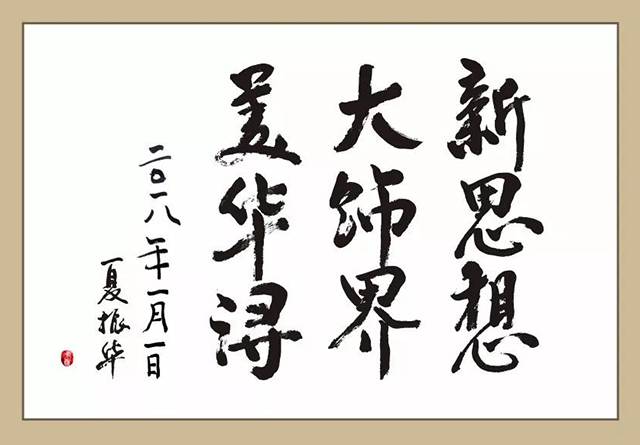 新思想
大师界
美华浔
二〇一八年一月一日
夏振华